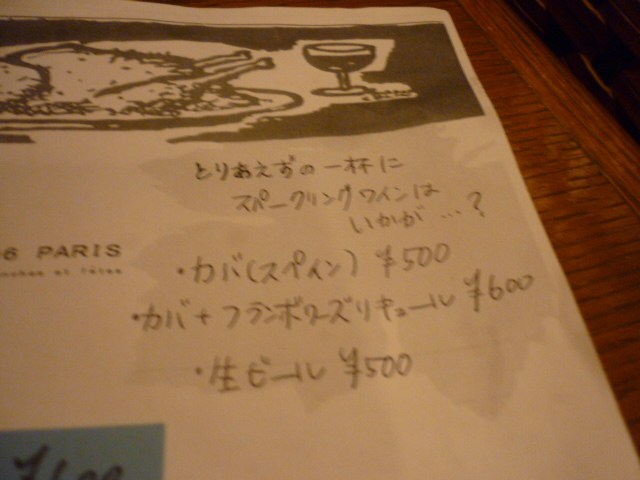 とりあえずの一杯に
スパークリングワインは
いかが…?
6 PARIS
・カバ(スペイン) ¥500
・カバ+フランボワーズリキュール ¥600
・生ビール ¥500